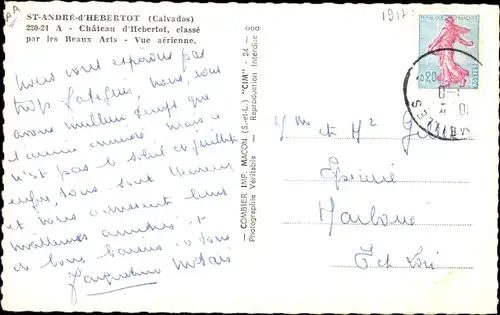 AA
1917
ST-ANDRÉ-d'HEBERTOT (Calvados)
220-24 A - Château d'Hebertot, classé
par les Beaux Arts - Vue aérienne.
nous vous espérons pas
trop fatigués, nous, nous
avons meilleur temps que
l'année dernière mais ce
n'est pas le soleil de juillet
enfin, tous sont heureux
et vous adressent leurs
meilleures amitiés et
de bons baisers à tous
Jacqueline
— COMBIER IMP. MACON (S.-et-L.) "CIM" - 24 —
Photographie Véritable - Reproduction Interdite
REPUBLIQUE FRANÇAISE
0,20
Mme et Mr
Epicerie
Harloue
Et Loir